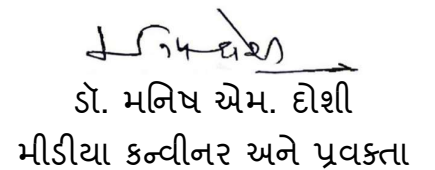 ડૉ. મનિષ એમ. દોશી
મીડીયા કન્વીનર અને પ્રવક્તા